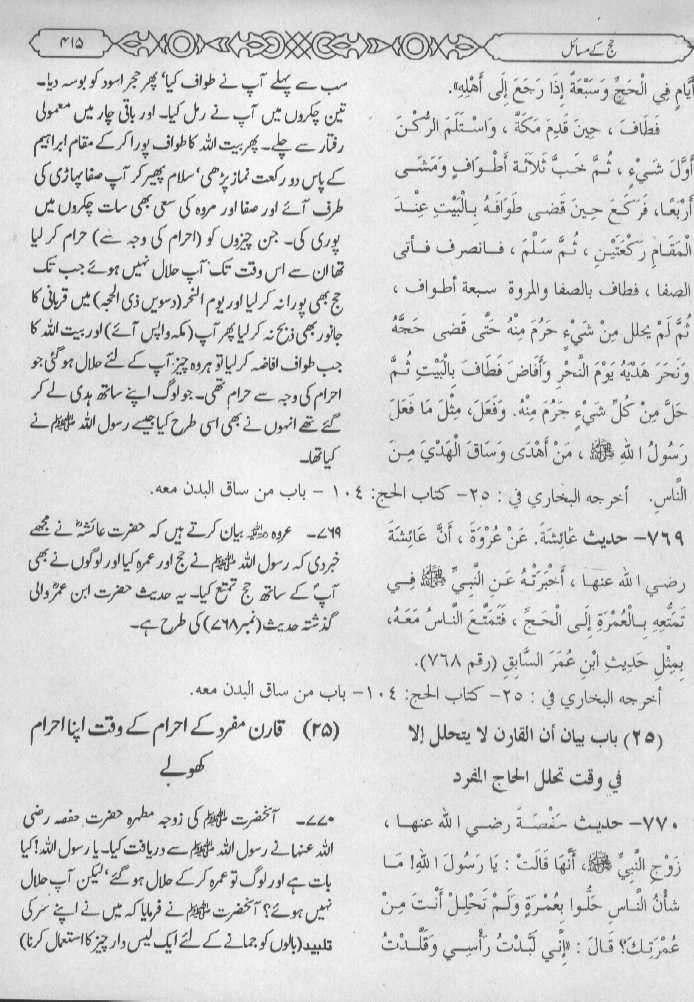 حج کے مسائل
۴۱۵
أَيَّامٍ فِي الْحَجِّ وَسَبْعَةً إِذَا رَجَعَ إِلَى أَهْلِهِ».
فَطَافَ ، حِينَ قَدِمَ مَكَّةَ ، وَاسْتَلَمَ الرُّكْنَ
أَوَّلَ شَيْءٍ ، ثُمَّ خَبَّ ثَلَاثَةَ أَطْوَافٍ وَمَشَى
أَرْبَعًا، فَرَكَعَ حِينَ قَضَى طَوَافَهُ بِالْبَيْتِ عِنْدَ
الْمَقَامِ رَكْعَتَيْنِ ، ثُمَّ سَلَّمَ ، فانصرف فأتى
الصفا ، فطاف بالصفا والمروة سبعة أطواف ،
ثُمَّ لَمْ يحلل مِنْ شَيْءٍ حَرُمَ مِنْهُ حَتَّى قَضَى حَجَّهُ
وَنَحَرَ هَدْيَهُ يَوْمَ النَّحْرِ وَأَفَاضَ فَطَافَ بِالْبَيْتِ ثُمَّ
حَلَّ مِنْ كُلِّ شَيْءٍ حَرُمَ مِنْهُ. وَفَعَلَ، مِثْلَ مَا فَعَلَ
رَسُولُ اللهِ ﷺ ، مَنْ أَهْدَى وَسَاقَ الْهَدْيَ مِنَ
النَّاسِ. أخرجه البخاري في : ٢٥- كتاب الحج: ١٠٤ - باب من ساق البدن معه.
سب سے پہلے آپ نے طواف کیا‘ پھر حجر اسود کو بوسہ دیا۔
تین چکروں میں آپ نے رمل کیا۔ اور باقی چار میں معمولی
رفتار سے چلے۔ پھر بیت اللہ کا طواف پورا کر کے مقام ابراہیم
کے پاس دو رکعت نماز پڑھی‘ سلام پھیر کر آپ صفا پہاڑی کی
طرف آئے اور صفا اور مروہ کی سعی بھی سات چکروں میں
پوری کی۔ جن چیزوں کو (احرام کی وجہ سے) حرام کر لیا
تھا ان سے اس وقت تک آپ حلال نہیں ہوئے جب تک
حج بھی پورا نہ کر لیا اور یوم النحر (دسویں ذی الحجہ) میں قربانی کا
جانور بھی ذبح نہ کر لیا پھر آپ (مکہ واپس آئے) اور بیت اللہ کا
جب طواف افاضہ کر لیا تو ہر وہ چیز آپ کے لئے حلال ہو گئی جو
احرام کی وجہ سے حرام تھی۔ جو لوگ اپنے ساتھ ہدی لے کر
گئے تھے انہوں نے بھی اسی طرح کیا جیسے رسول اللہ ﷺ نے
کیا تھا۔
٧٦٩- حديث عَائِشَةَ. عَنْ عُرْوَةَ ، أَنَّ عَائِشَةَ
رضي الله عنها ، أَخْبَرَتْهُ عَنِ النَّبِيِّ ﷺ فِي
تَمَتُّعِهِ بِالْعُمْرَةِ إِلَى الْحَجِّ ، فَتَمَتَّعَ النَّاسُ مَعَهُ،
بِمِثْلِ حَدِيثِ ابْنِ عُمَرَ السَّابِقِ (رقم ٧٦٨).
أخرجه البخاري في : ٢٥- كتاب الحج: ١٠٤- باب من ساق البدن معه.
۷۶۹۔ عروہ بیان کرتے ہیں کہ حضرت عائشہ نے مجھے
خبر دی کہ رسول اللہ ﷺ نے حج اور عمرہ کیا اور لوگوں نے بھی
آپ کے ساتھ حج تمتع کیا۔ یہ حدیث حضرت ابن عمر والی
گذشتہ حدیث (نمبر ۷۶۸) کی طرح ہے۔
(٢٥) باب بيان أن القارن لا يتحلل إلا
في وقت تحلل الحاج المفرد
(۲۵) قارن مفرد کے احرام کے وقت اپنا احرام
کھولے
٧٧٠- حديث حَفْصَةَ رضي الله عنها ،
زَوْجِ النَّبِيِّ ﷺ، أَنَّهَا قَالَتْ : يَا رَسُولَ اللهِ! مَا
شَأْنُ النَّاسِ حَلُّوا بِعُمْرَةٍ وَلَمْ تَحْلِلْ أَنْتَ مِنْ
عُمْرَتِكَ؟ قَالَ : «إِنِّي لَبَّدْتُ رَأْسِي وَقَلَّدْتُ
۷۷۰۔ آنحضرت ﷺ کی زوجہ مطہرہ حضرت حفصہ رضی
اللہ عنہا نے رسول اللہ ﷺ سے دریافت کیا۔ یا رسول اللہ! کیا
بات ہے اور لوگ تو عمرہ کر کے حلال ہو گئے‘ لیکن آپ حلال
نہیں ہوئے؟ آنحضرت ﷺ نے فرمایا کہ میں نے اپنے سر کی
تلبید (بالوں کو جمانے کے لئے ایک لیس دار چیز کا استعمال کرنا)